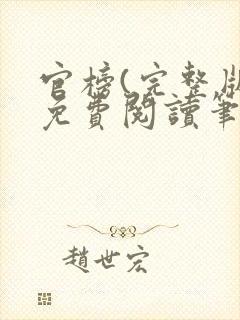 官榜(完整版
免費閱讀筆
趙世宏